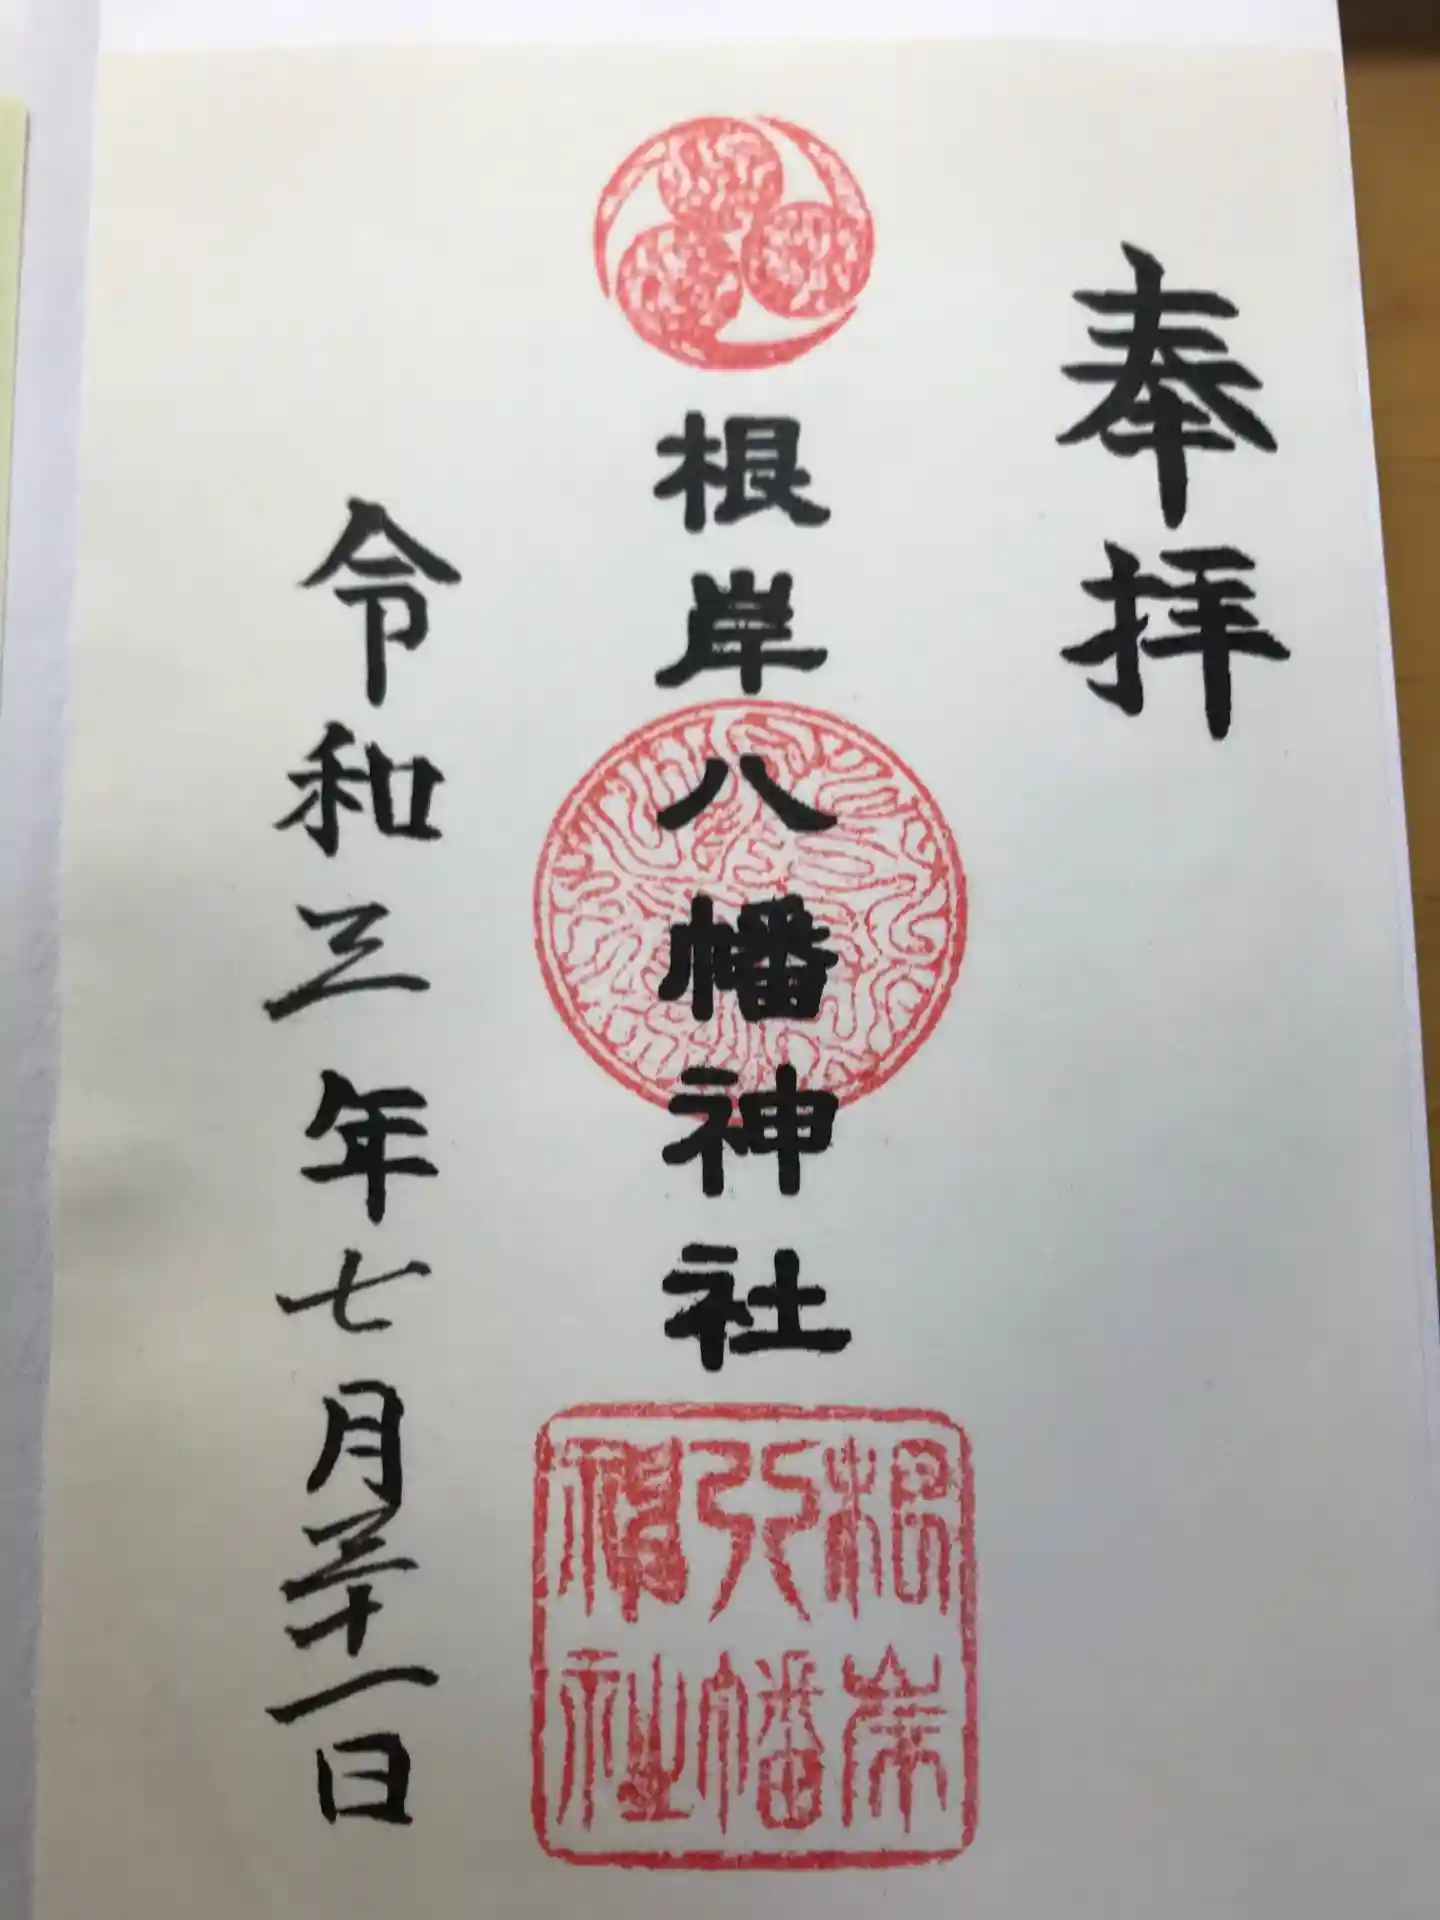 奉拝
根岸八幡神社
令和三年七月三十一日
根岸
八幡
神社